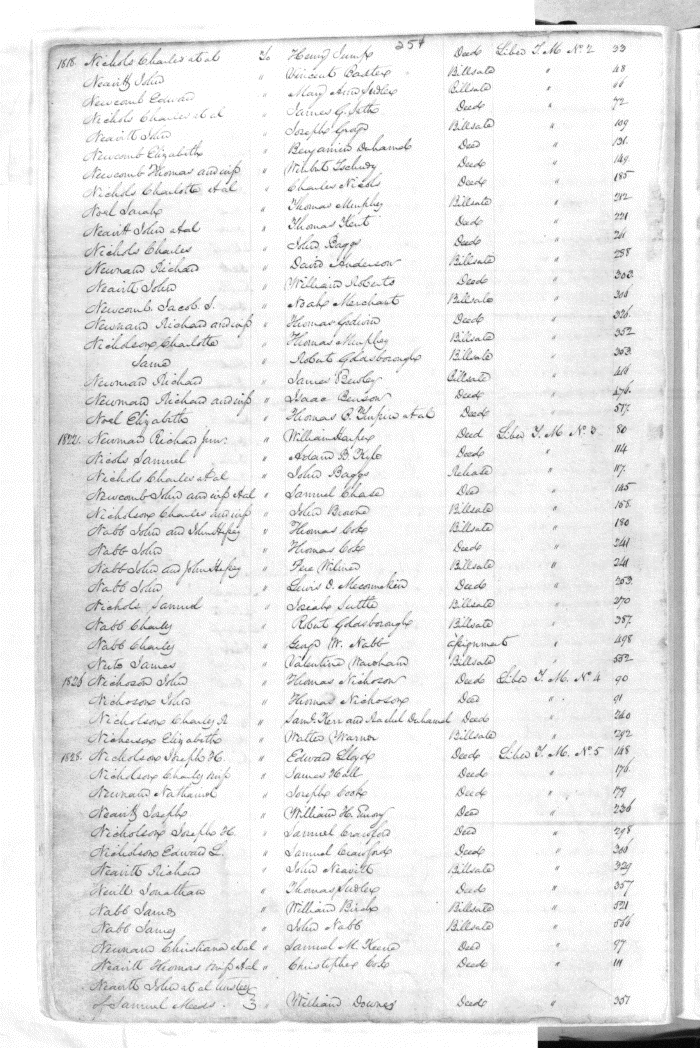 254
1818. Nichols Charles et al To Henry Jump Deed Liber T. M. No 2 33
Neavitt John " Vincent Baxter Billsale " 48
Newcomb Edward " Mary Ann Billsale " 66
Nichols Charles et al " James G. Seth Deed " 72
Neavitt John " Joseph Billsale " 109
Newcomb Elizabeth " Benjamin Duhamel Deed " 131.
Newcomb Thomas and wife " Deed " 149.
Nichols Charlotte et al " Charles Nicols Deed " 185
Noel Sarah " Thomas Murphey Billsale " 212
Neavitt John et al " Thomas Kent Deed " 221
Nichols Charles " John Baggs Deed "
Newnam Richard " David Anderson Billsale " 288
Neavitt John " William Roberts Deed " 303.
Newcomb Jacob " Noah Merchant Billsale " 306
Newnam Richard and wife " Thomas Godwin Deed " 326.
Nicholson Charlotte " Thomas Murphey Billsale " 352
Same " Robert Goldsborough Billsale " 353
Newman Richard " James Billsale " 416
Newman Richard and wife " Isaac Benson Deed " 476.
Noel Elizabeth " Thomas C. Turpin et al Deed " 517.
1822. Newman Richard junr. " William Harper Deed Liber T. M. No 3 80
Nicols Samuel " Adam B. Deed " 114
Nichols Charles et al " John Baggs Release " 117.
Newcomb John and wife et al " Samuel Chase Deed " 145
Nicholson Charles and wife " John Billsale " 158
Nabb John and John " Thomas Cox Billsale " 180
Nabb John " Thomas Cox Deed " 241
Nabb John and John " Wilmer Billsale " 241
Nabb John " Lewis D. Deed " 253
Nichols Samuel " Josiah Billsale " 270
Nabb Charley " Robert Goldsborough Billsale " 387.
Nabb Charley " George W. Nabb assignment " 498
James " Valentine Billsale " 552
Nicholson John " Thomas Nicholson Deed Liber T. M. No 4 90
Nicholson John " Thomas Nicholson Deed " 91
Nicholson Charley " Saml. Kerr and Rachel Duhamel Deed " 240
Nicherson Elizabeth " Walter Warner Billsale " 292
1828. Nicholson Joseph H. " Edward Lloyd Deed Liber T. M. No 5 148
Nicholson Charley " James Hall Deed " 176.
Newnam Nathaniel " Joseph Cook Deed " 179
Neavitt Joseph " William H. Emory Deed " 236
Nicholson Joseph H " Samuel Crawford Deed " 298
Nicholson Edward L. " Samuel Crawford Deed " 306
Neavitt Richard " John Neavitt Billsale " 329
Nevill Jonathan " Thomas Deed " 357
Nabb James " William Billsale " 521
Nabb James " John Nabb Billsale " 566
Newnam Christiana et al " Samuel M. Keene Deed " 97
Neavitt Thomas et al " Christopher Cox Deed " 111
Neavitt John et al trustees
of Samuel Meeds. } " William Downes Deed " 357